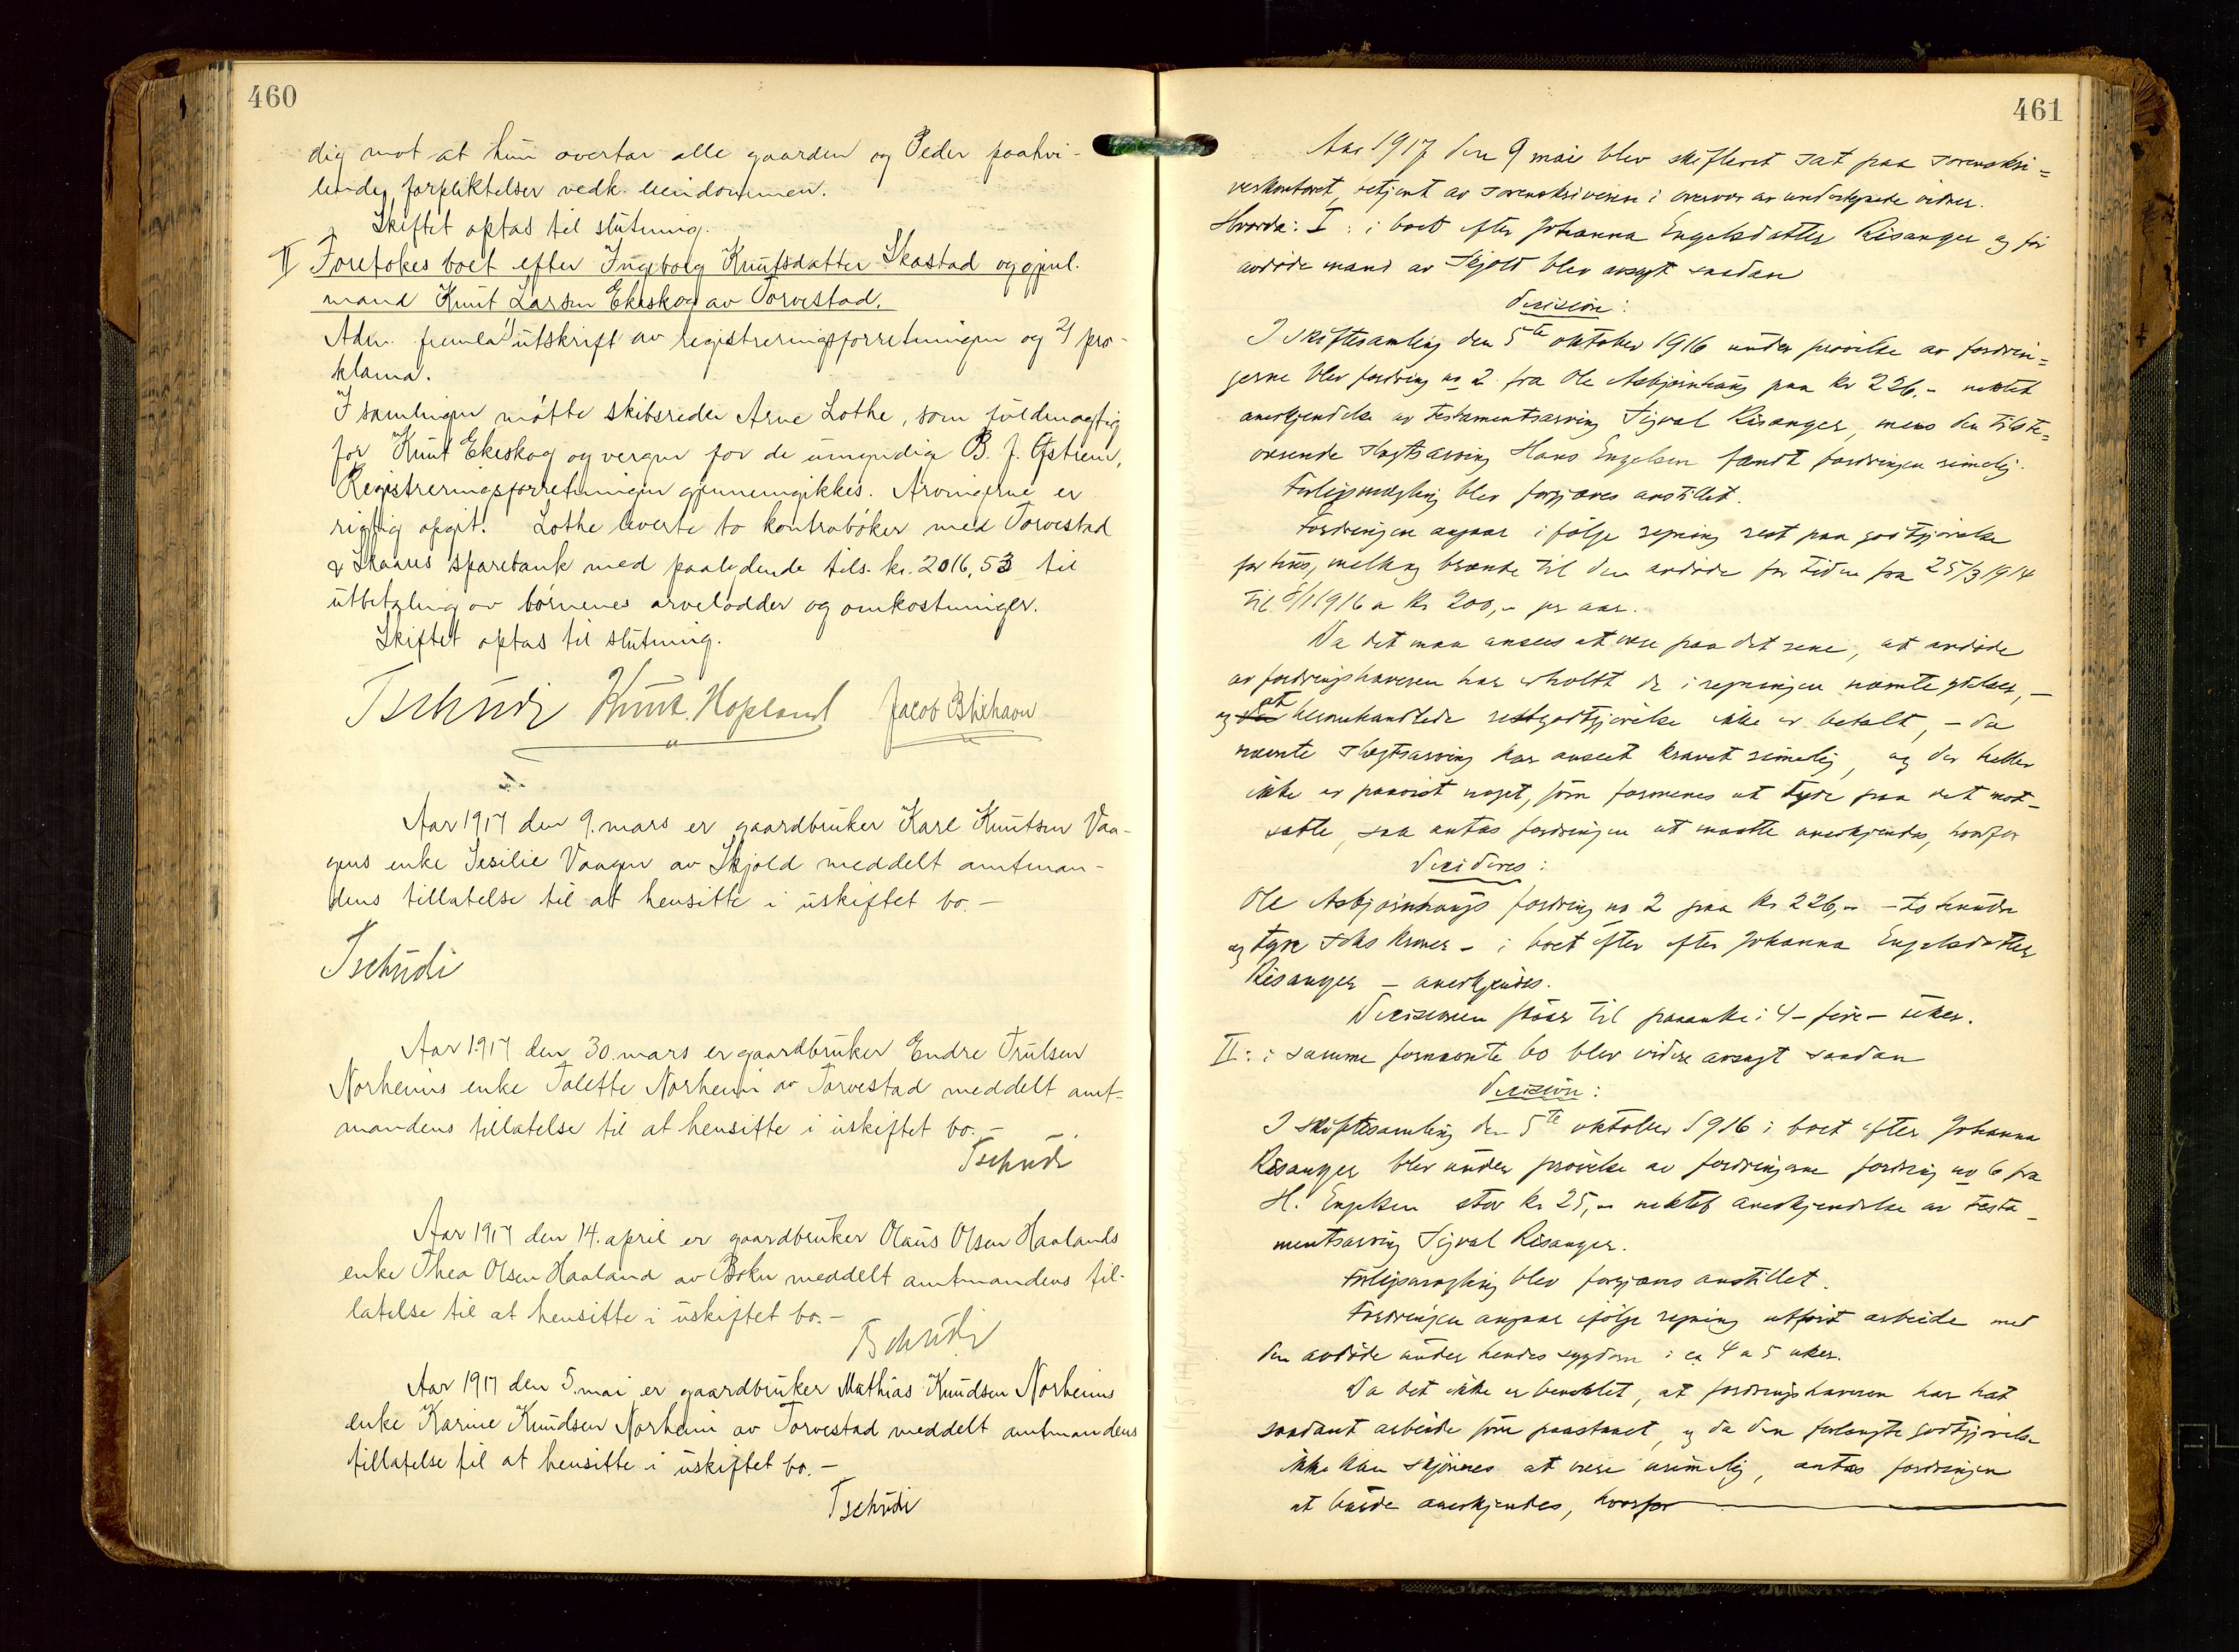 460
dig mot at hun overtar alle gaarden og Peder paahvi-
lende forpliktelser vedk. eiendommen.
Skiftet optas til slutning.
II Foretokes boet efter Ingeborg Knutsdatter Skastad og gjenl.
mand Knut Larsen Ekeskog av Torvestad.
Adm. fremla utskrift av registreringsforretningen og pro-
klama.
I samlingen møtte skibsreder Arne Lothe, som fuldmægtig
for Knut Ekeskog og vergen for de umyndige B. J. Østrem,
Registreringsforretningen gjennemgikkes. Arvingerne er
rigtig opgit. Lothe leverte to kontrabøker med Torvestad
& Skaares sparebank med paalydende tils. kr. 2016,53 til
utbetaling av børnenes arvelodder og omkostninger.
Skiftet optas til slutning.
Tschudi Knut. Hopland Jacob Blikhavn
Aar 1917 den 9. mars er gaardbruker Karl Knutsen Vaa-
gens enke Sesilie Vaagen av Skjold meddelt amtman-
dens tillatelse til at hensitte i uskiftet bo. -
Tschudi
Aar 1917 den 30. mars er gaardbruker Endre Trulsen
Norheims enke Talette Norheim av Torvestad meddelt amt-
mandens tillatelse til at hensitte i uskiftet bo. -
Tschudi
Aar 1917 den 14. april er gaardbruker Olaus Olsen Haalands
enke Thea Olsen Haaland av Bokn meddelt amtmandens til-
latelse til at hensitte i uskiftet bo. -
Tschudi
Aar 1917 den 5. mai er gaardbruker Mathias Knudsen Norheims
enke Karine Knudsen Norheim av Torvestad meddelt amtmandens
tillatelse til at hensitte i uskiftet bo. -
Tschudi
461
Aar 1917 den 9 mai blev skifteret sat paa sorenskri=
verkontoret, betjent av sorenskriveren i overvær av undertegnede vidner.
Hvorda: I: i boet efter Johanna Engelsdatter Risanger og før
avdøde mand av Skjold blev avsagt saadan
decision:
I skiftesamling den 5te oktober 1916 under prøvelse av fordrin=
gerne blev fordring no 2 fra Ole Asbjørnhaug paa kr 226,- nektet
anerkjendelse av testamentsarving Sigval Risanger, mens den tilste=
værende slegtsarving Hans Engelsen fandt fordringen rimelig.
Forligsmægling blev forgjæves anstillet.
Fordringen angaar i følge regning rest paa godtgjørelse
for hus, melk og brænde til den avdøde for tiden fra 25/3 1914
til 8/1 1916 a kr 200,- pr aar.
Da det maa ansees at være paa det rene, at avdøde
av fordringshaveren har erholdt de i regningen nævnte ytelser, -
og at heromhandlede restgodtgjørelse ikke er betalt, - da
nævnte slegtsarving har anseet kravet rimelig, og der heller
ikke er paavist noget, som formenes at tyde paa det mot-
satte, saa antas fordringen at maatte anerkjendes, hvorfor
decideres:
Ole Asbjørnhaugs fordring no 2 paa kr. 226,- - to hundre
og tyve seks kroner - i boet efter efter Johanna Engelsdatter
Risanger - anerkjendes.
Decisionen staar til paaanke i 4 - fire - uker.
II: i samme fornævnte bo blev videre avsagt saadan
decision:
I skiftesamling den 5te oktober 1916 i boet efter Johanna
Risanger blev under prøvelse av fordringerne fordring no 6 fra
H. Engelsen stor kr 25,- nektet anerkjendelse av testa-
mentsarving Sigval Risanger.
Forligsmægling blev forgjæves anstillet.
Fordringen angaar ifølge regning utført arbeide med
den avdøde under hendes sygdom i ca 4 a 5 uker.
Da det ikke er benektet, at fordringshaveren har hat
saadant arbeide som paastaaet, og da den forlangte godtgjørelse
ikke kan skjønnes at være urimelig, antas fordringen
at burde anerkjendes, hvorfor